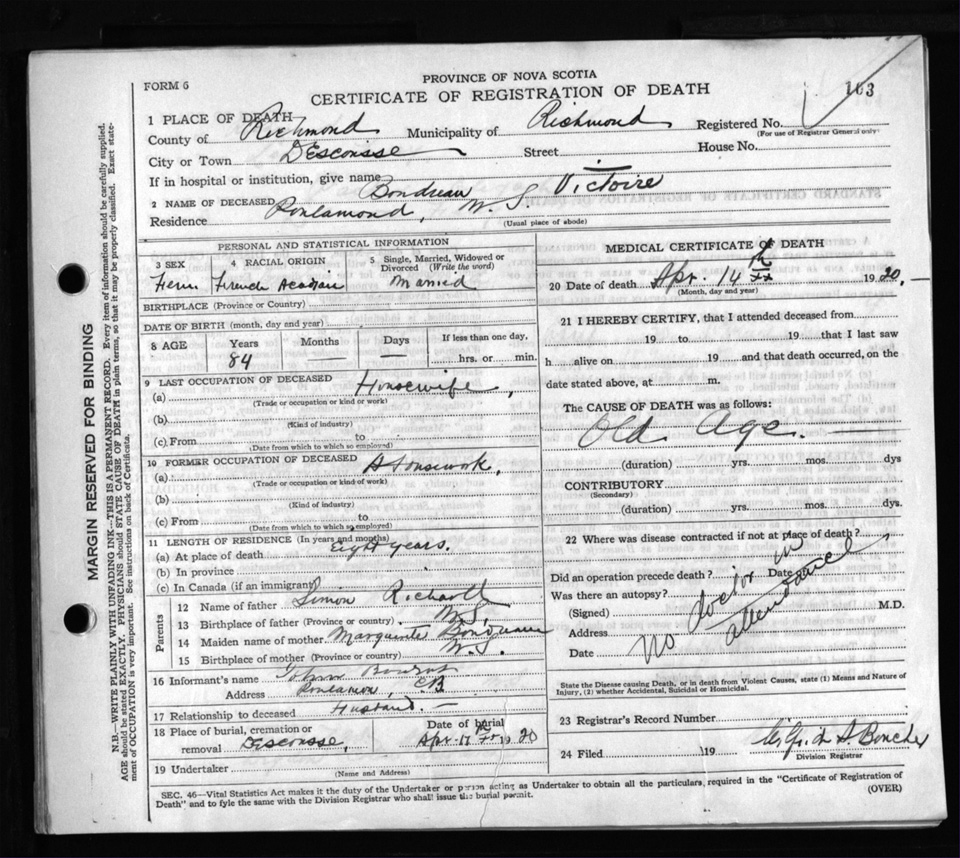 FORM 6
PROVINCE OF NOVA SCOTIA
CERTIFICATE OF REGISTRATION OF DEATH
103
1 PLACE OF DEATH
County of Richmond Municipality of Richmond Registered No.
(For use of Registrar General only)
City or Town DEscousse Street House No.
If in hospital or institution, give name
2 NAME OF DECEASED Boudreau Victoire
Residence Poulamond, N. S.
(Usual place of abode)
PERSONAL AND STATISTICAL INFORMATION
3 SEX 4 RACIAL ORIGIN 5 Single, Married, Widowed or Divorced (Write the word)
Fem French Acadian Married
BIRTHPLACE (Province or Country)
DATE OF BIRTH (month, day and year)
8 AGE Years Months Days If less than one day,
84 — — hrs. or min.
9 LAST OCCUPATION OF DECEASED
(a) Housewife,
(Trade or occupation or kind or work)
(b)
(Kind of industry)
(c) From to
(Date from which to which so employed)
10 FORMER OCCUPATION OF DECEASED
(a) Housework,
(Trade or occupation or kind of work)
(b)
(Kind of industry)
(c) From to
(Date from which to which so employed)
11 LENGTH OF RESIDENCE (In years and months)
(a) At place of death Eight years.
(b) In province
(c) In Canada (if an immigrant)
Parents
12 Name of father Simon Richard
13 Birthplace of father (Province or country) N.S.
14 Maiden name of mother Marguerite
15 Birthplace of mother (Province or country) N.S.
16 Informant's name John
Address Poulamon, CB
17 Relationship to deceased Husband. —
18 Place of burial, cremation or removal DEscousse, Date of burial Apr. 17 1920
19 Undertaker
(Name and Address)
MEDICAL CERTIFICATE OF DEATH
20 Date of death Apr. 14th 1920,
(Month, day and year)
21 I HEREBY CERTIFY, that I attended deceased from
19 to 19 that I last saw
h alive on 19 and that death occurred, on the
date stated above, at m.
The CAUSE OF DEATH was as follows:
Old Age. —
(duration) yrs. mos. dys
CONTRIBUTORY
(Secondary)
(duration) yrs. mos. dys.
22 Where was disease contracted if not at place of death?
Did an operation precede death? Date of
Was there an autopsy?
(Signed) M.D.
Address
Date
No doctor in attendance
State the Disease causing Death, or in death from Violent Causes, state (1) Means and Nature of
Injury, (2) whether Accidental, Suicidal or Homicidal.
23 Registrar's Record Number
24 Filed 19
Division Registrar
SEC. 46—Vital Statistics Act makes it the duty of the Undertaker or person acting as Undertaker to obtain all the particulars required in the "Certificate of Registration of
Death" and to fyle the same with the Division Registrar who shall issue the burial permit.
(OVER)
MARGIN RESERVED FOR BINDING
N.B.—WRITE PLAINLY WITH UNFADING INK—THIS IS A PERMANENT RECORD. Every item of information should be carefully supplied.
AGE should be stated EXACTLY. PHYSICIANS should STATE CAUSE OF DEATH in plain terms, so that it may be properly classified. Exact state-
ment of OCCUPATION is very important. See instructions on back of Certificate.